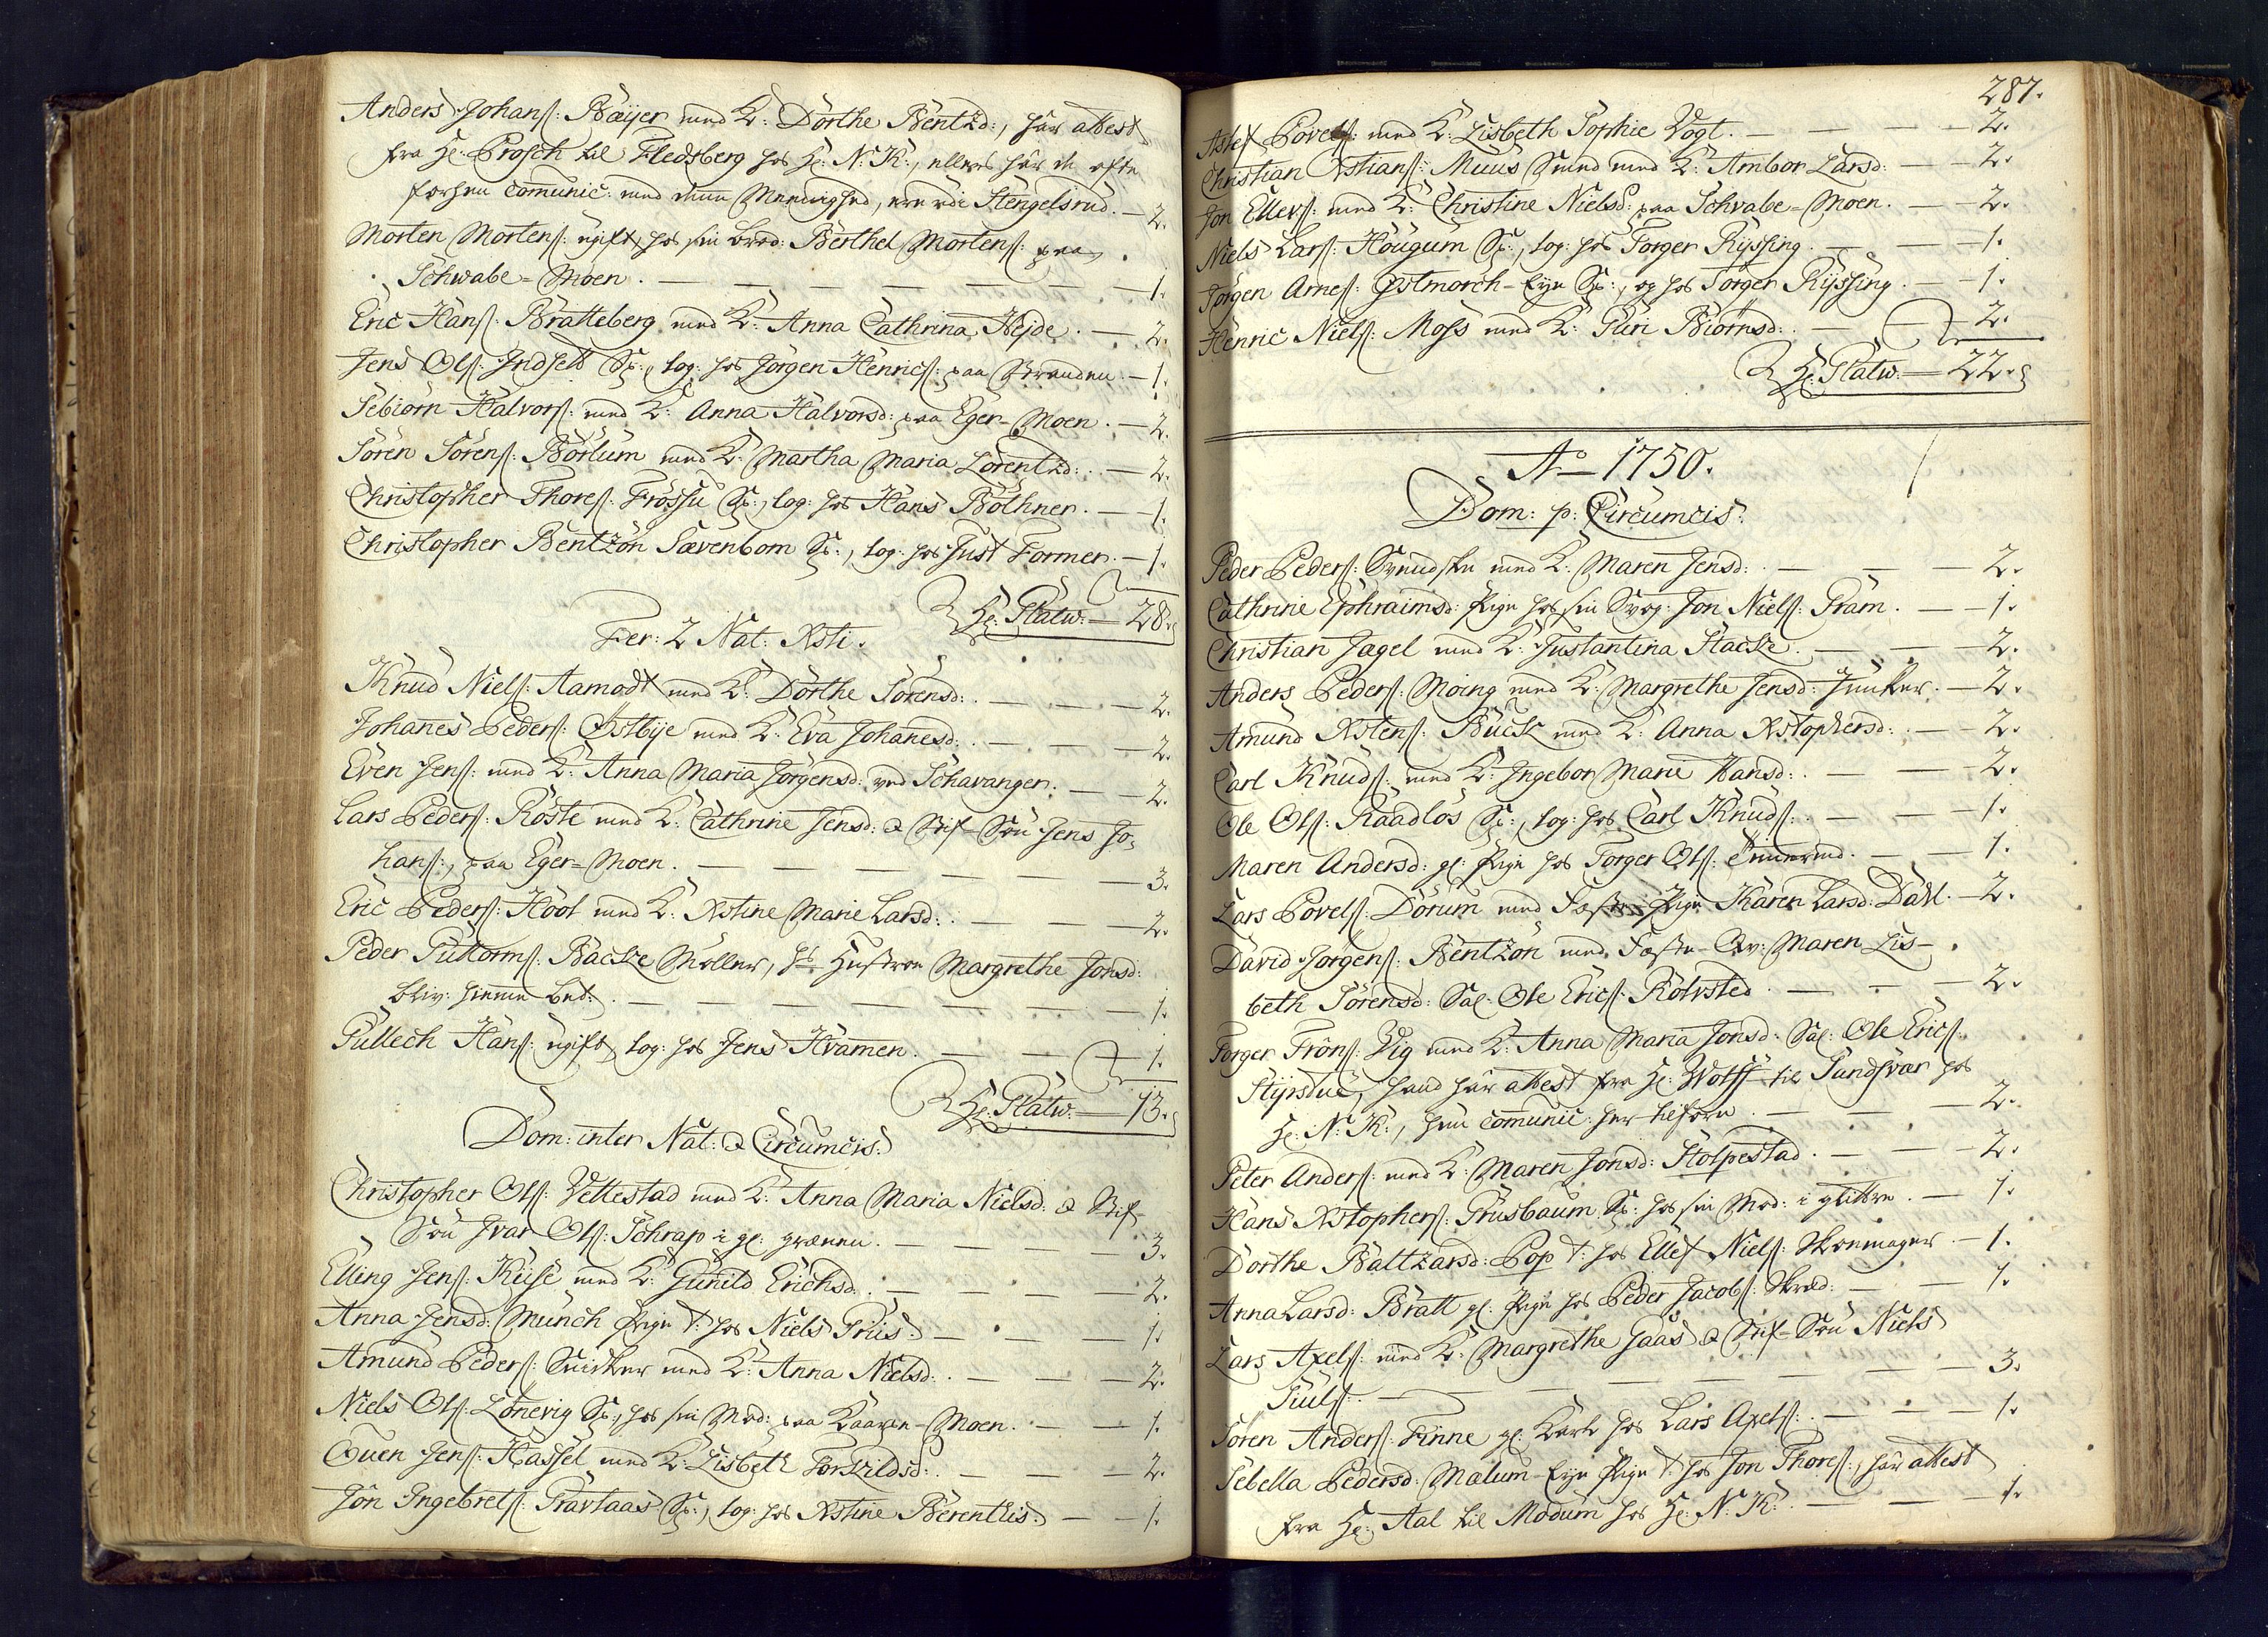 Anders Johans: Bæijer med K: Dorthe Bentzd:, har attest
fra Hr: Brosch til Fledsberg hos Hr: N: K:, ellers har de ofte
forhen comunic: med denne Meenighed, ere v di Stengelsrud. — 2.
Morten Mortens: ugift, hos sin brod: Berthel Mortens: paa
Schwabe-Moen. — 1.
Eric Hans: Bratteberg med K: Anna Cathrina Hejde. — 2.
Jens Ols: Indset S:, log: hos Jörgen Henrics: paa Stranden — 1.
Sebiörn Halvors: med K: Anna Halvorsd: paa Eger-Moen. — 2.
Sören Sörens: Börlum med K: Martha Maria Lorentzd: — 2.
Christopher Thores: Frossu S:, log: hos Hans Böthner. — 1.
Christopher Bentzön Sævenbom S:, log: hos Just Former. — 1.
Hr: Platw: — 28.
Fer: 2 Nat: Xsti.
Knud Niels: Aamodt med K: Dorthe Sörensd: — 2.
Johanes Peders: Östbije med K: Eva Johanesd: — 2.
Even Jens: med K: Anna Maria Jörgensd: ved Schavanger. — 2.
Lars Peders: Röste med K: Cathrine Jensd: & Stif-Sön Jens Jo-
hans:, paa Eger-Moen. — 3.
Eric Peders: Hööt med K: Xstine Marie Larsd: — 2.
Peder Guttorms: Backe Möller, hs Hustroe Margrethe Jonsd:
bliv: hiemme bet: — 1.
Gullech Hans: ugift, log: hos Jens Hvamen. — 1.
Hr: Platw: — 13.
Dom: inter Nat: & Circumcis:
Christopher Ols: Vettestad med K: Anna Maria Nielsd: & Stif-
Sön Ivar Ols: Schrap i gl: grænen. — 3.
Elling Jens: Kuse med K: Gunild Erichsd: — 2.
Anna Jensd: Munch Pige t: hos Niels Priis: — 1.
Amund Peders: Snidker med K: Anna Nielsd: — 2.
Niels Ols: Lönevig S:, hos sin Mod: paa Kaaren-Moen. — 1.
Ouen Jens: Hassel med K: Lisbeth Torkildsd: — 2.
Jön Ingebrets: Gravlaas S:, log: hos Xstine Berentlis: — 1.
287.
Aslef Povels: med K: Lisbeth Sophie Vogt. — 2.
Christian Xstians: Muus Smed med K: Ambor Larsd: — 2.
Jon Ellevs: med K: Christine Nielsd: paa Schvabe-Moen. — 2.
Niels Lars: Höugum S:, log: hos Torger Ryssing. — 1.
Jörgen Arnes: Östmörch-Eje S:, og hos Torger Ryssing. — 1.
Henric Niels: Moss med K: Guri Biörnsd: — 2.
Hr: Platw: — 22.
Ao 1750.
Dom: p: Circumcis:
Peder Peders: Svendske med K: Maren Jensd: — 2.
Cathrine Ephraimsd: Pige hos sin Svog: Jon Niels: Gram. — 1.
Christian Jagel med K: Justantina Stacke. — 2.
Anders Peders: Moing med K: Margrethe Jensd: Juncker. — 2.
Amund Xstens: Buck med K: Anna Xstophersd: — 2.
Carl Knuds: med K: Ingebor Marie Hansd: — 2.
Ole Ols: Raadlös S:, log: hos Carl Knuds: — 1.
Maren Andersd: gl: Pige hos Torger Ols: — 1.
Lars Povels: Dörum med Fæste-Pige Karen Larsd: Dahl. — 2.
David Jörgens: Bentzon med Fæste-Qv: Maren Lis-
beth Sörensd: Sal: Ole Erics: Rolvsted. — 2.
Torger Tröns: Vig med K: Anna Maria Jonsd: Sal: Ole Erics:
Stijsdue, hand har attest fra Hr: Wolff til Sandsvær hos
Hr: N: K:, hun comunic: her tilforn. — 2.
Peter Anders: med K: Maren Jonsd: Stolpestad. — 2.
Hans Xstophers: Grusbaum S: hos sin Mod: i glittre. — 1.
Dorthe Baltzarsd: Pop t: hos Ellef Niels: Skoemager — 1.
Anna Larsd: Bratt gl: Pige hos Peder Jacobs: Skræd: — 1.
Lars Axels: med K: Margrethe Gaas & Stif-Sön Niels
Juls: — 3.
Sören Anders: Finne gl: Karl hos Lars Axels: — 1.
Sebella Pedersd: Malum-Eje Pige t: hos Jon Thores:, har attest
fra Hr: Aal til Modum hos Hr: N: K: — 1.